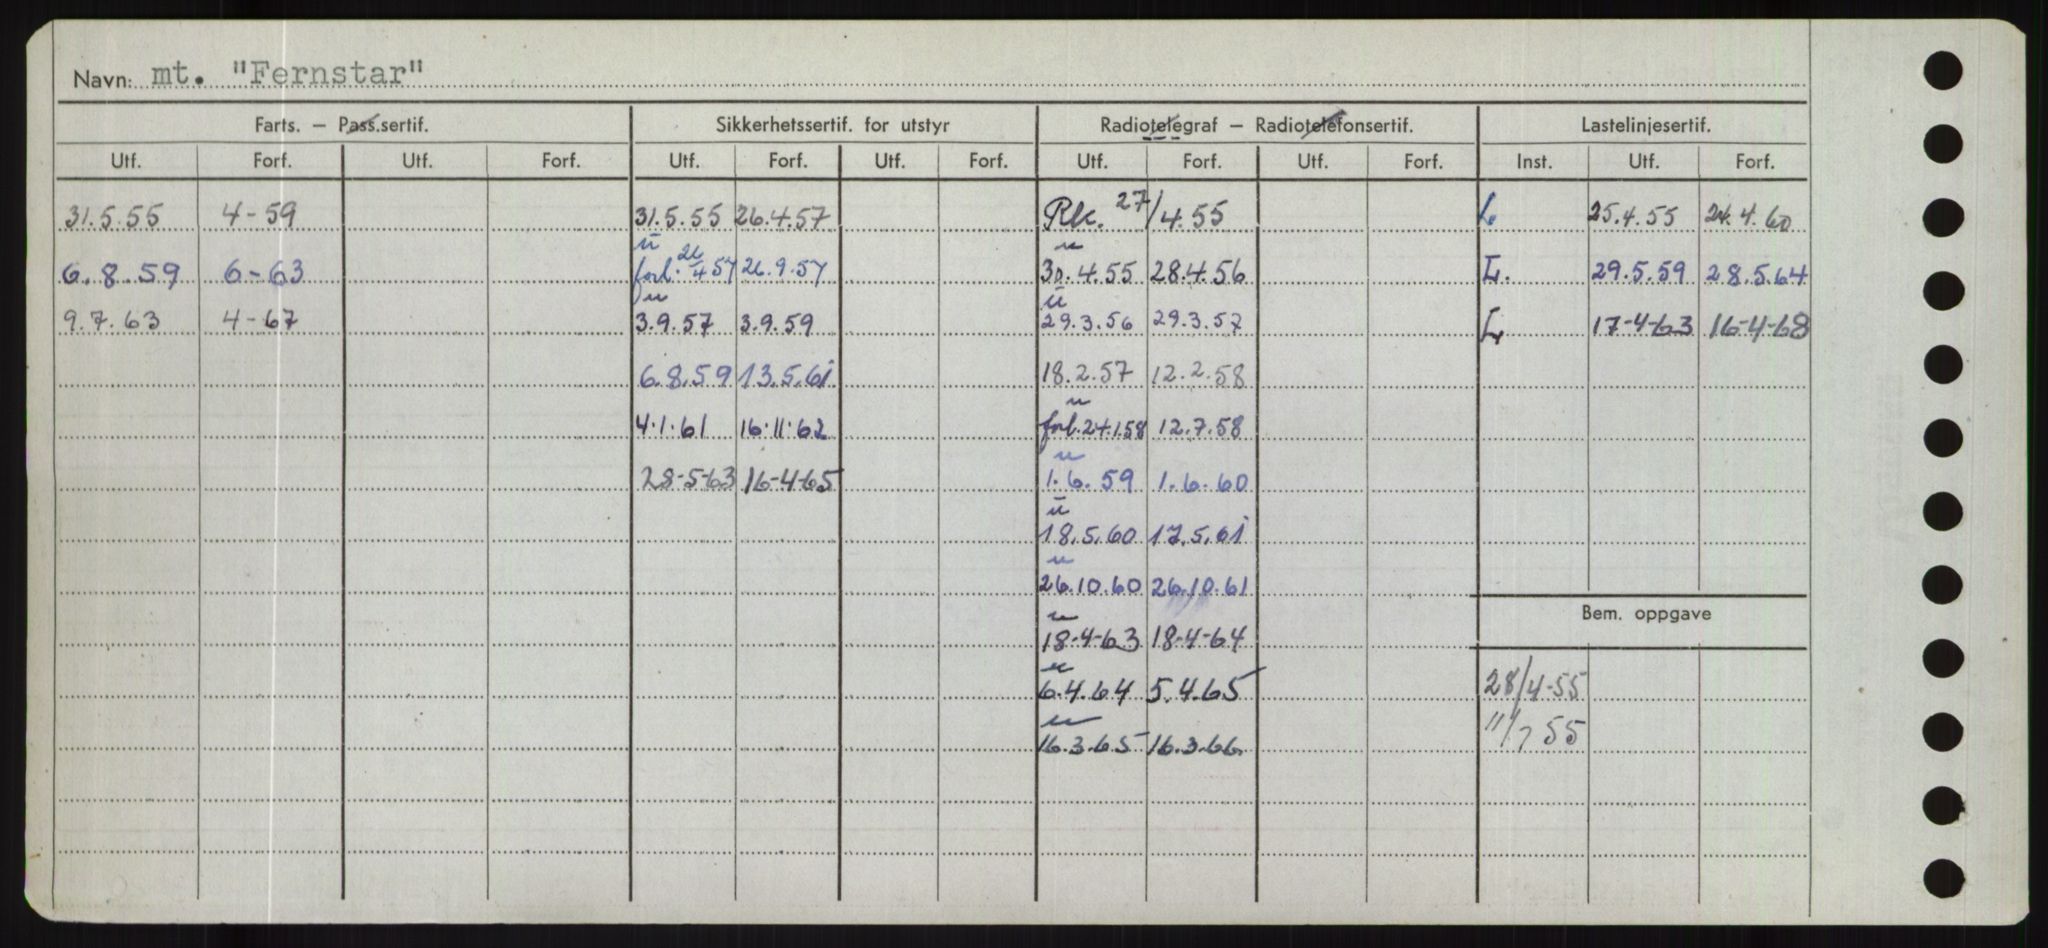 Navn: mt. "Fernstar"
Farts. — Pass.sertif. Sikkerhetssertif. for utstyr Radiotelegraf — Radiotelefonsertif. Lastelinjesertif.
Utf. Forf. Utf. Forf. Utf. Forf. Utf. Forf. Utf. Forf. Utf. Forf. Inst. Utf. Forf.
31.5.55 4-59 31.5.55 26.4.57 Rk. 27/4.55 L 25.4.55 24.4.60
ū u
6.8.59 6-63 forl. 26/4 57 26.9.57 30.4.55 28.4.56 L. 29.5.59 28.5.64
u ū
9.7.63 4-67 3.9.57 3.9.59 29.3.56 29.3.57 L 17-4-63 16-4-68
6.8.59 13.5.61 18.2.57 12.2.58
u
4.1.61 16.11.62 forl. 24.1.58 12.7.58
u
28-5-63 16-4-65 1.6.59 1.6.60
ū
18.5.60 17.5.61
u
26.10.60 26.10.61
Bem. oppgave
u
18-4-63 18-4-64
u
6.4.64 5.4.65 28/4-55
u
16.3.65 16.3.66 11/7 55